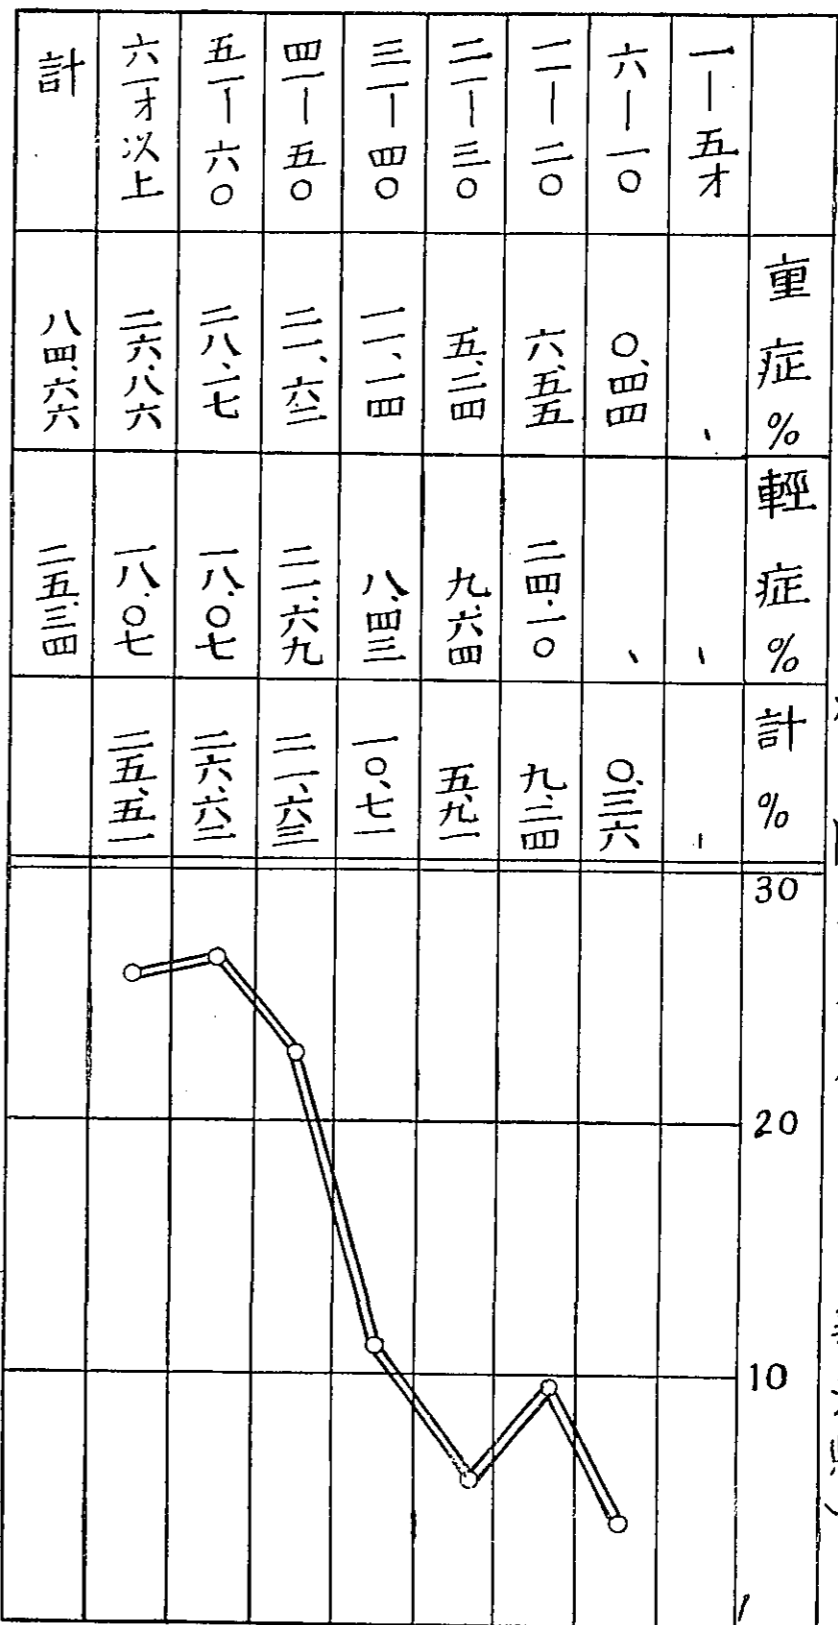 重症% 輕症% 計% 30 20 10
一－五才 、 、 、
六－一〇 〇、四四 、 〇、三六
一一－二〇 六、五五 二四、一〇 九、二四
二一－三〇 五、二四 九、六四 五、九一
三一－四〇 一一、一四 八、四三 一〇、七一
四一－五〇 二一、六二 二一、六九 二一、六三
五一－六〇 二八、一七 一八、〇七 二六、六二
六一才以上 二六、八六 一八、〇七 二五、五一
計 八四、六六 二五、三四